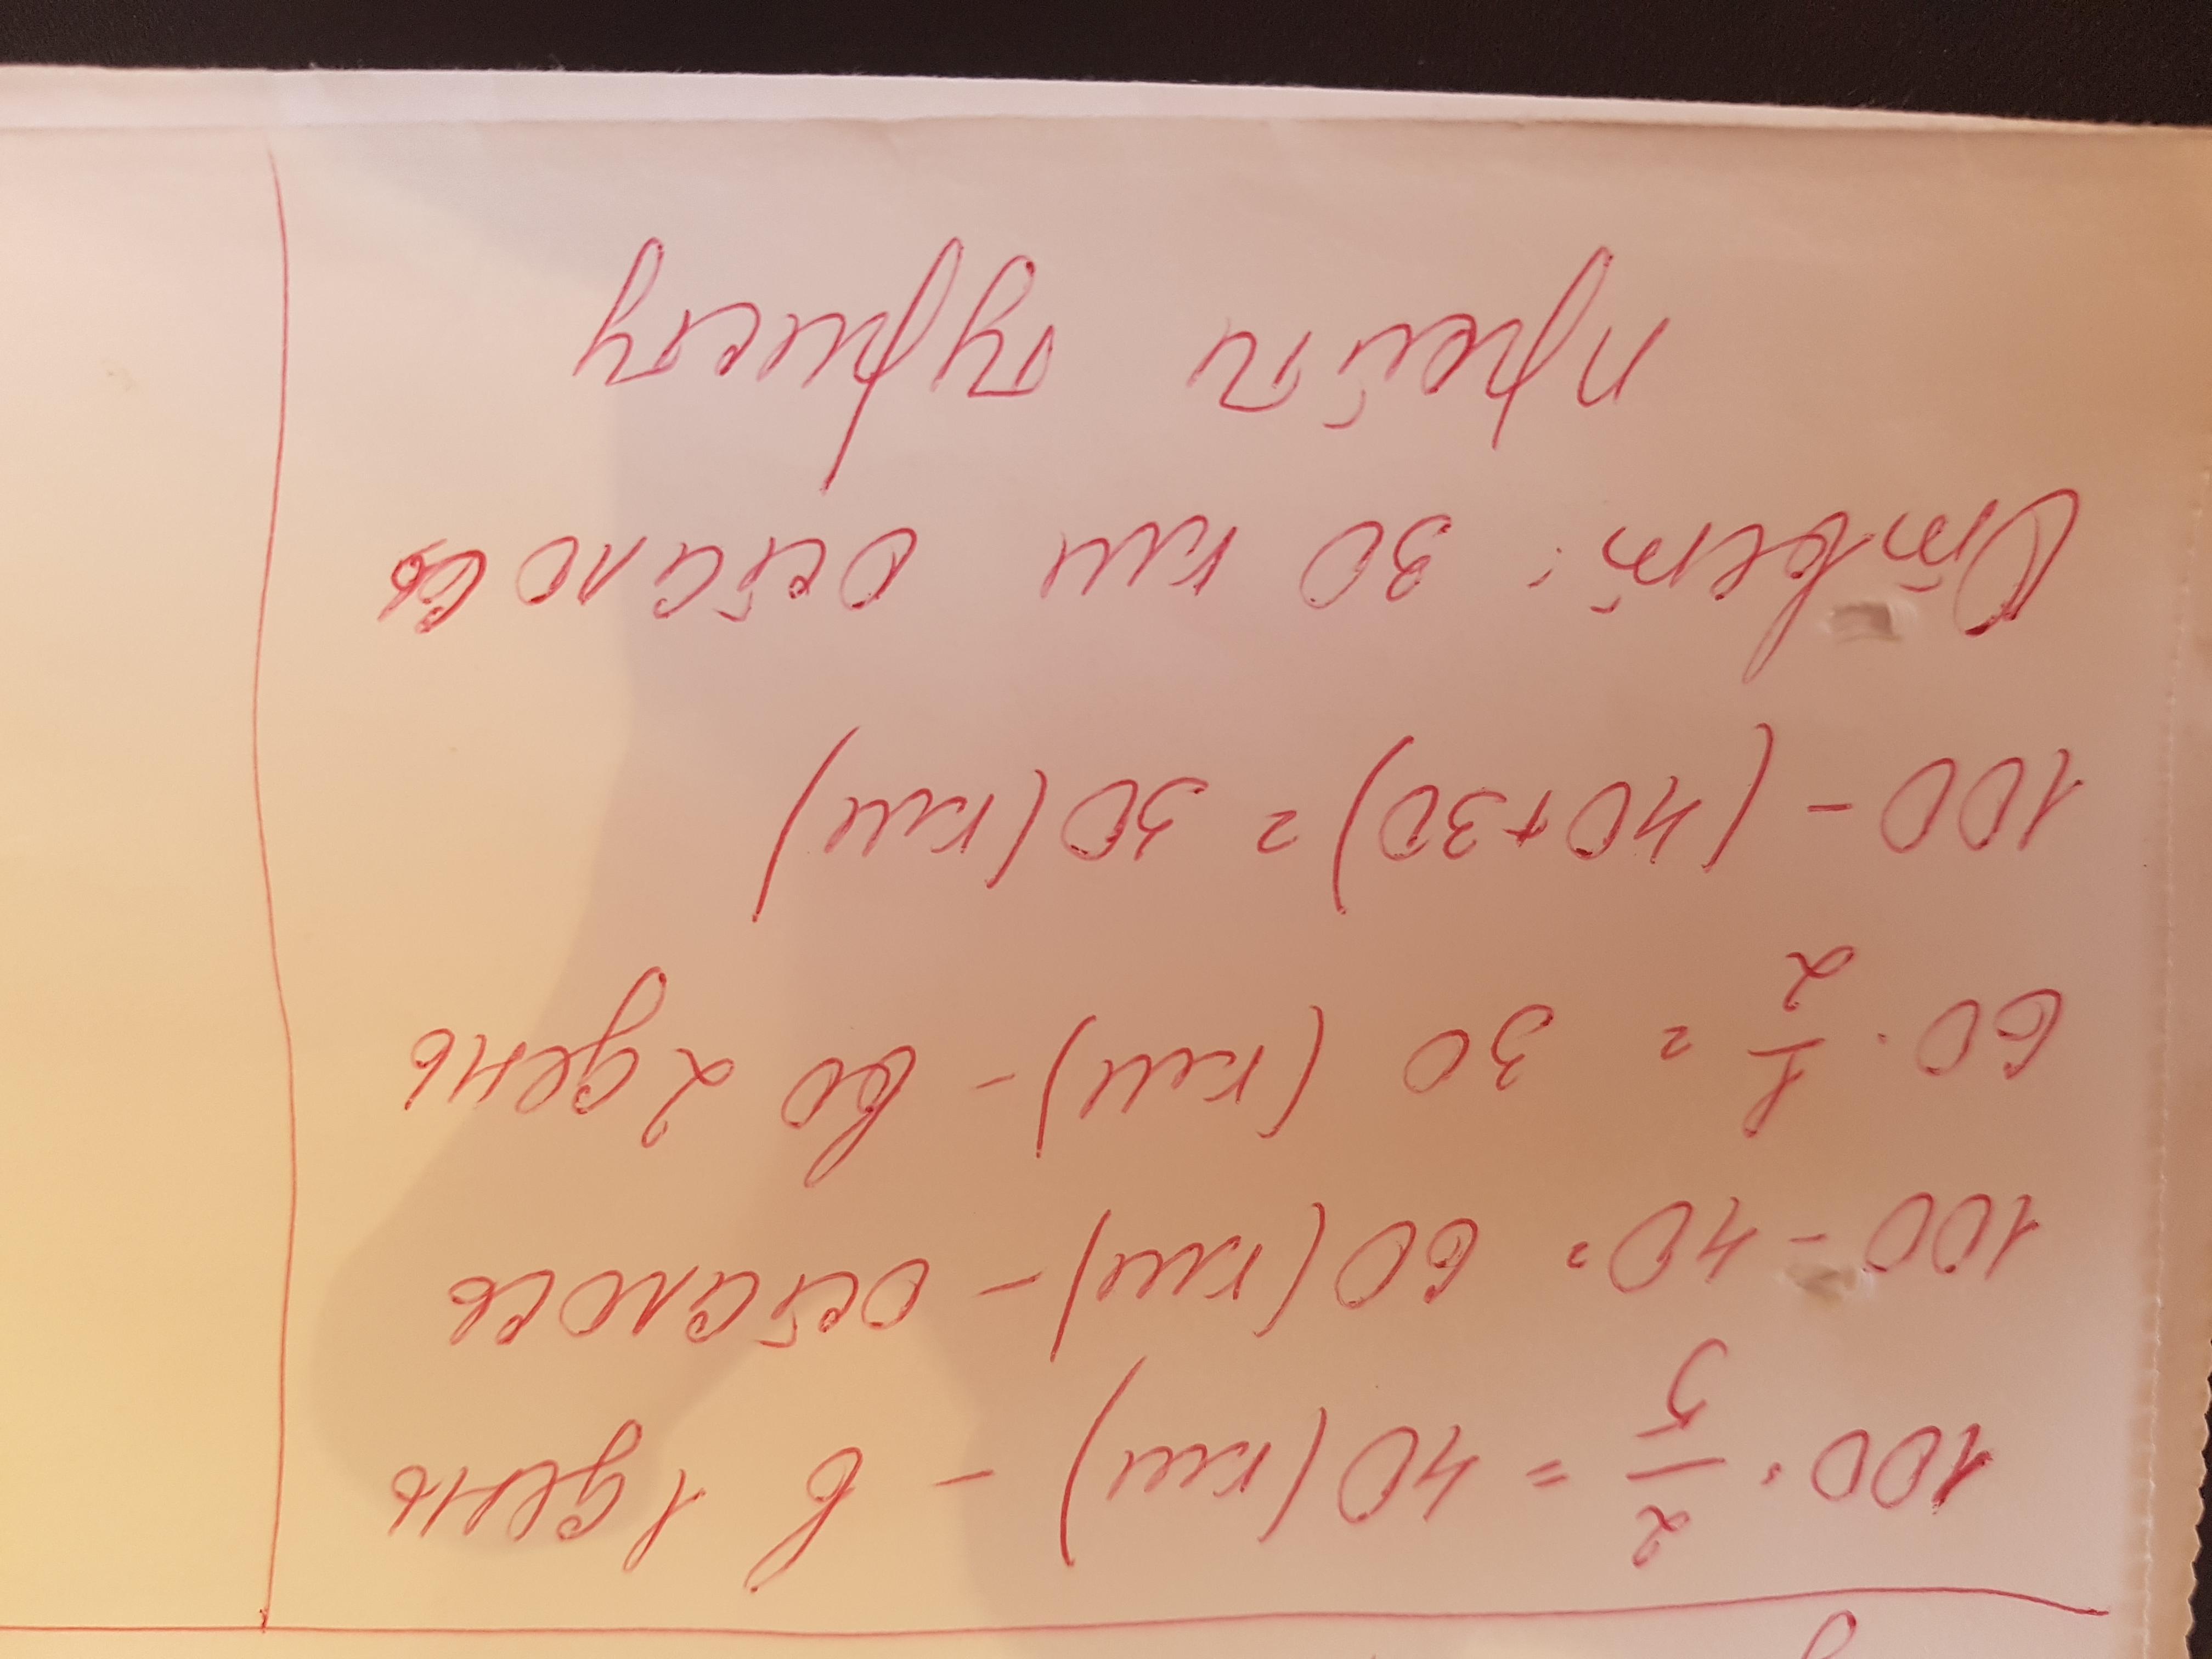 100 · 2/5 = 40 (км) - в 1 день
100 - 40 = 60 (км) - осталось
60 · 1/2 = 30 (км) - во 2 день
100 - (40+30) = 30 (км)
Ответ: 30 км осталось
пройти туристу